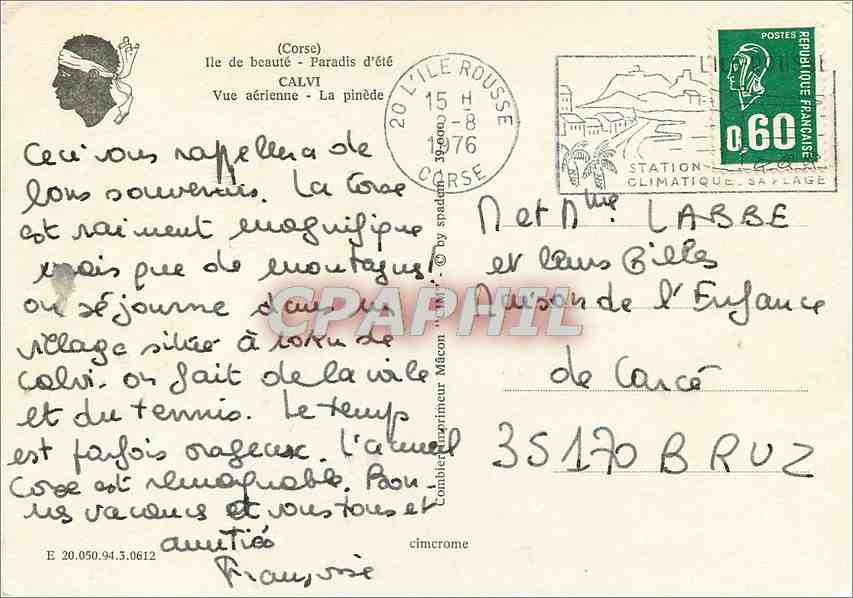 (Corse)
Ile de beauté - Paradis d'été
CALVI
Vue aérienne - La pinède
Ceci vous rappellera de
bons souvenirs. La Corse
est vraiment magnifique
mais que de montagnes!
on séjourne dans un
village situé à 10km de
Calvi. on fait de la voile
et du tennis. Le temps
est parfois orageux. L'accueil
Corse est remarquable. Bon-
nes vacances et vous tous et
amitiés
Françoise
E 20.050.94.3.0612
cimcrome
Combier imprimeur Mâcon "CIM" - © by spadem 39.000
20 L'ILE ROUSSE
15 H
-8
1976
CORSE
L'ILE ROUSSE
STATION
CLIMATIQUE SA PLAGE
POSTES
REPUBLIQUE FRANÇAISE
0,60
M et Mme. LABBE
et leurs filles
Maison de l'Enfance
de Carcé
35170 BRUZ
CPAPHIL